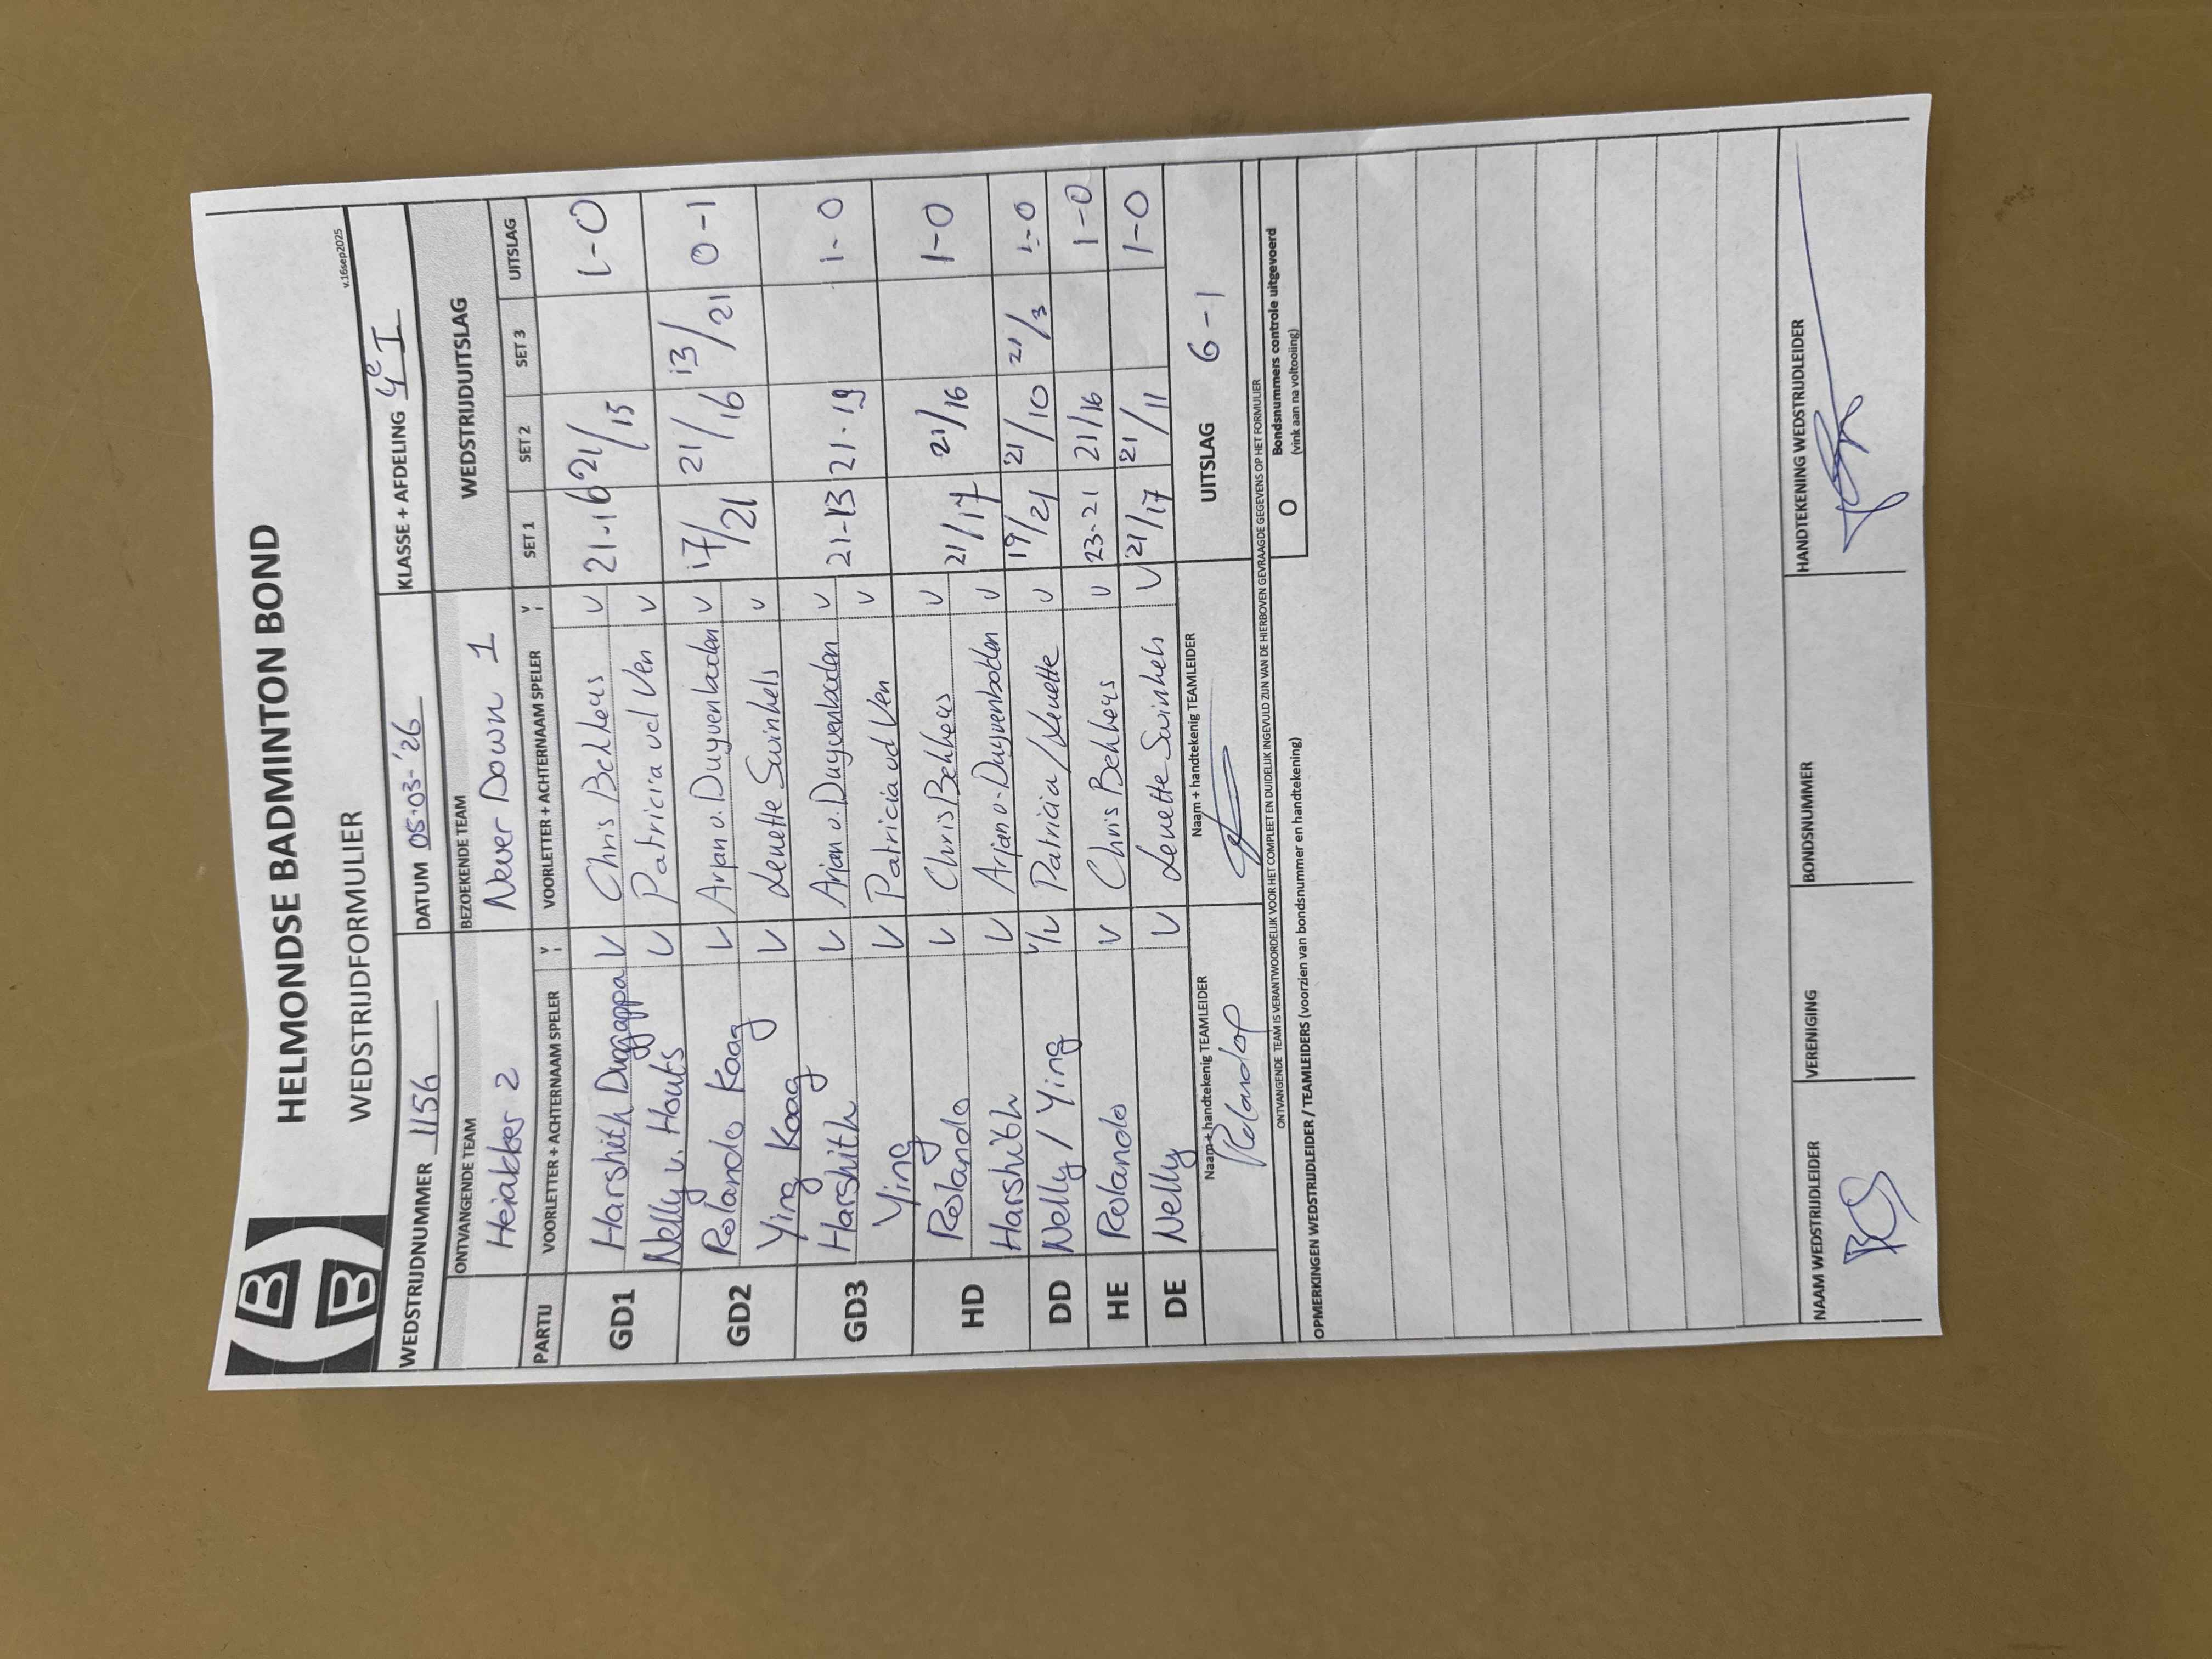 HELMONDSE BADMINTON BOND
WEDSTRIJDFORMULIER
v.16sep2025
WEDSTRIJDNUMMER 1156 DATUM 05-03-'26 KLASSE + AFDELING 4e I
ONTVANGENDE TEAM BEZOEKENDE TEAM WEDSTRIJDUITSLAG
Heiakker 2 Never Down 1
PARTIJ VOORLETTER + ACHTERNAAM SPELER V VOORLETTER + ACHTERNAAM SPELER V SET 1 SET 2 SET 3 UITSLAG
GD1 Harshith Duggappa V Chris Bekkers V 21-16 21/15 1-0
Nelly v. Houts V Patricia vd Ven V
GD2 Rolando Kaag V Arjan v. Duyvenboden V 17/21 21/16 13/21 0-1
Ying Kaag V Lenette Swinkels V
GD3 Harshith V Arjan v. Duyvenboden V 21-13 21-19 1-0
Ying V Patricia vd Ven V
HD Rolando V Chris Bekkers V 21/17 21/16 1-0
Harshith V Arjan v. Duyvenboden V
DD Nelly / Ying V/V Patricia / Lenette V 19/21 21/10 21/3 1-0
HE Rolando V Chris Bekkers V 23-21 21/16 1-0
DE Nelly V Lenette Swinkels V 21/17 21/11 1-0
Naam + handtekenig TEAMLEIDER Naam + handtekenig TEAMLEIDER UITSLAG 6-1
ONTVANGENDE TEAM IS VERANTWOORDELIJK VOOR HET COMPLEET EN DUIDELIJK INGEVULD ZIJN VAN DE HIERBOVEN GEVRAAGDE GEGEVENS OP HET FORMULIER
O Bondsnummers controle uitgevoerd
(vink aan na voltooiing)
OPMERKINGEN WEDSTRIJDLEIDER / TEAMLEIDERS (voorzien van bondsnummer en handtekening)
NAAM WEDSTRIJDLEIDER VERENIGING BONDSNUMMER HANDTEKENING WEDSTRIJDLEIDER